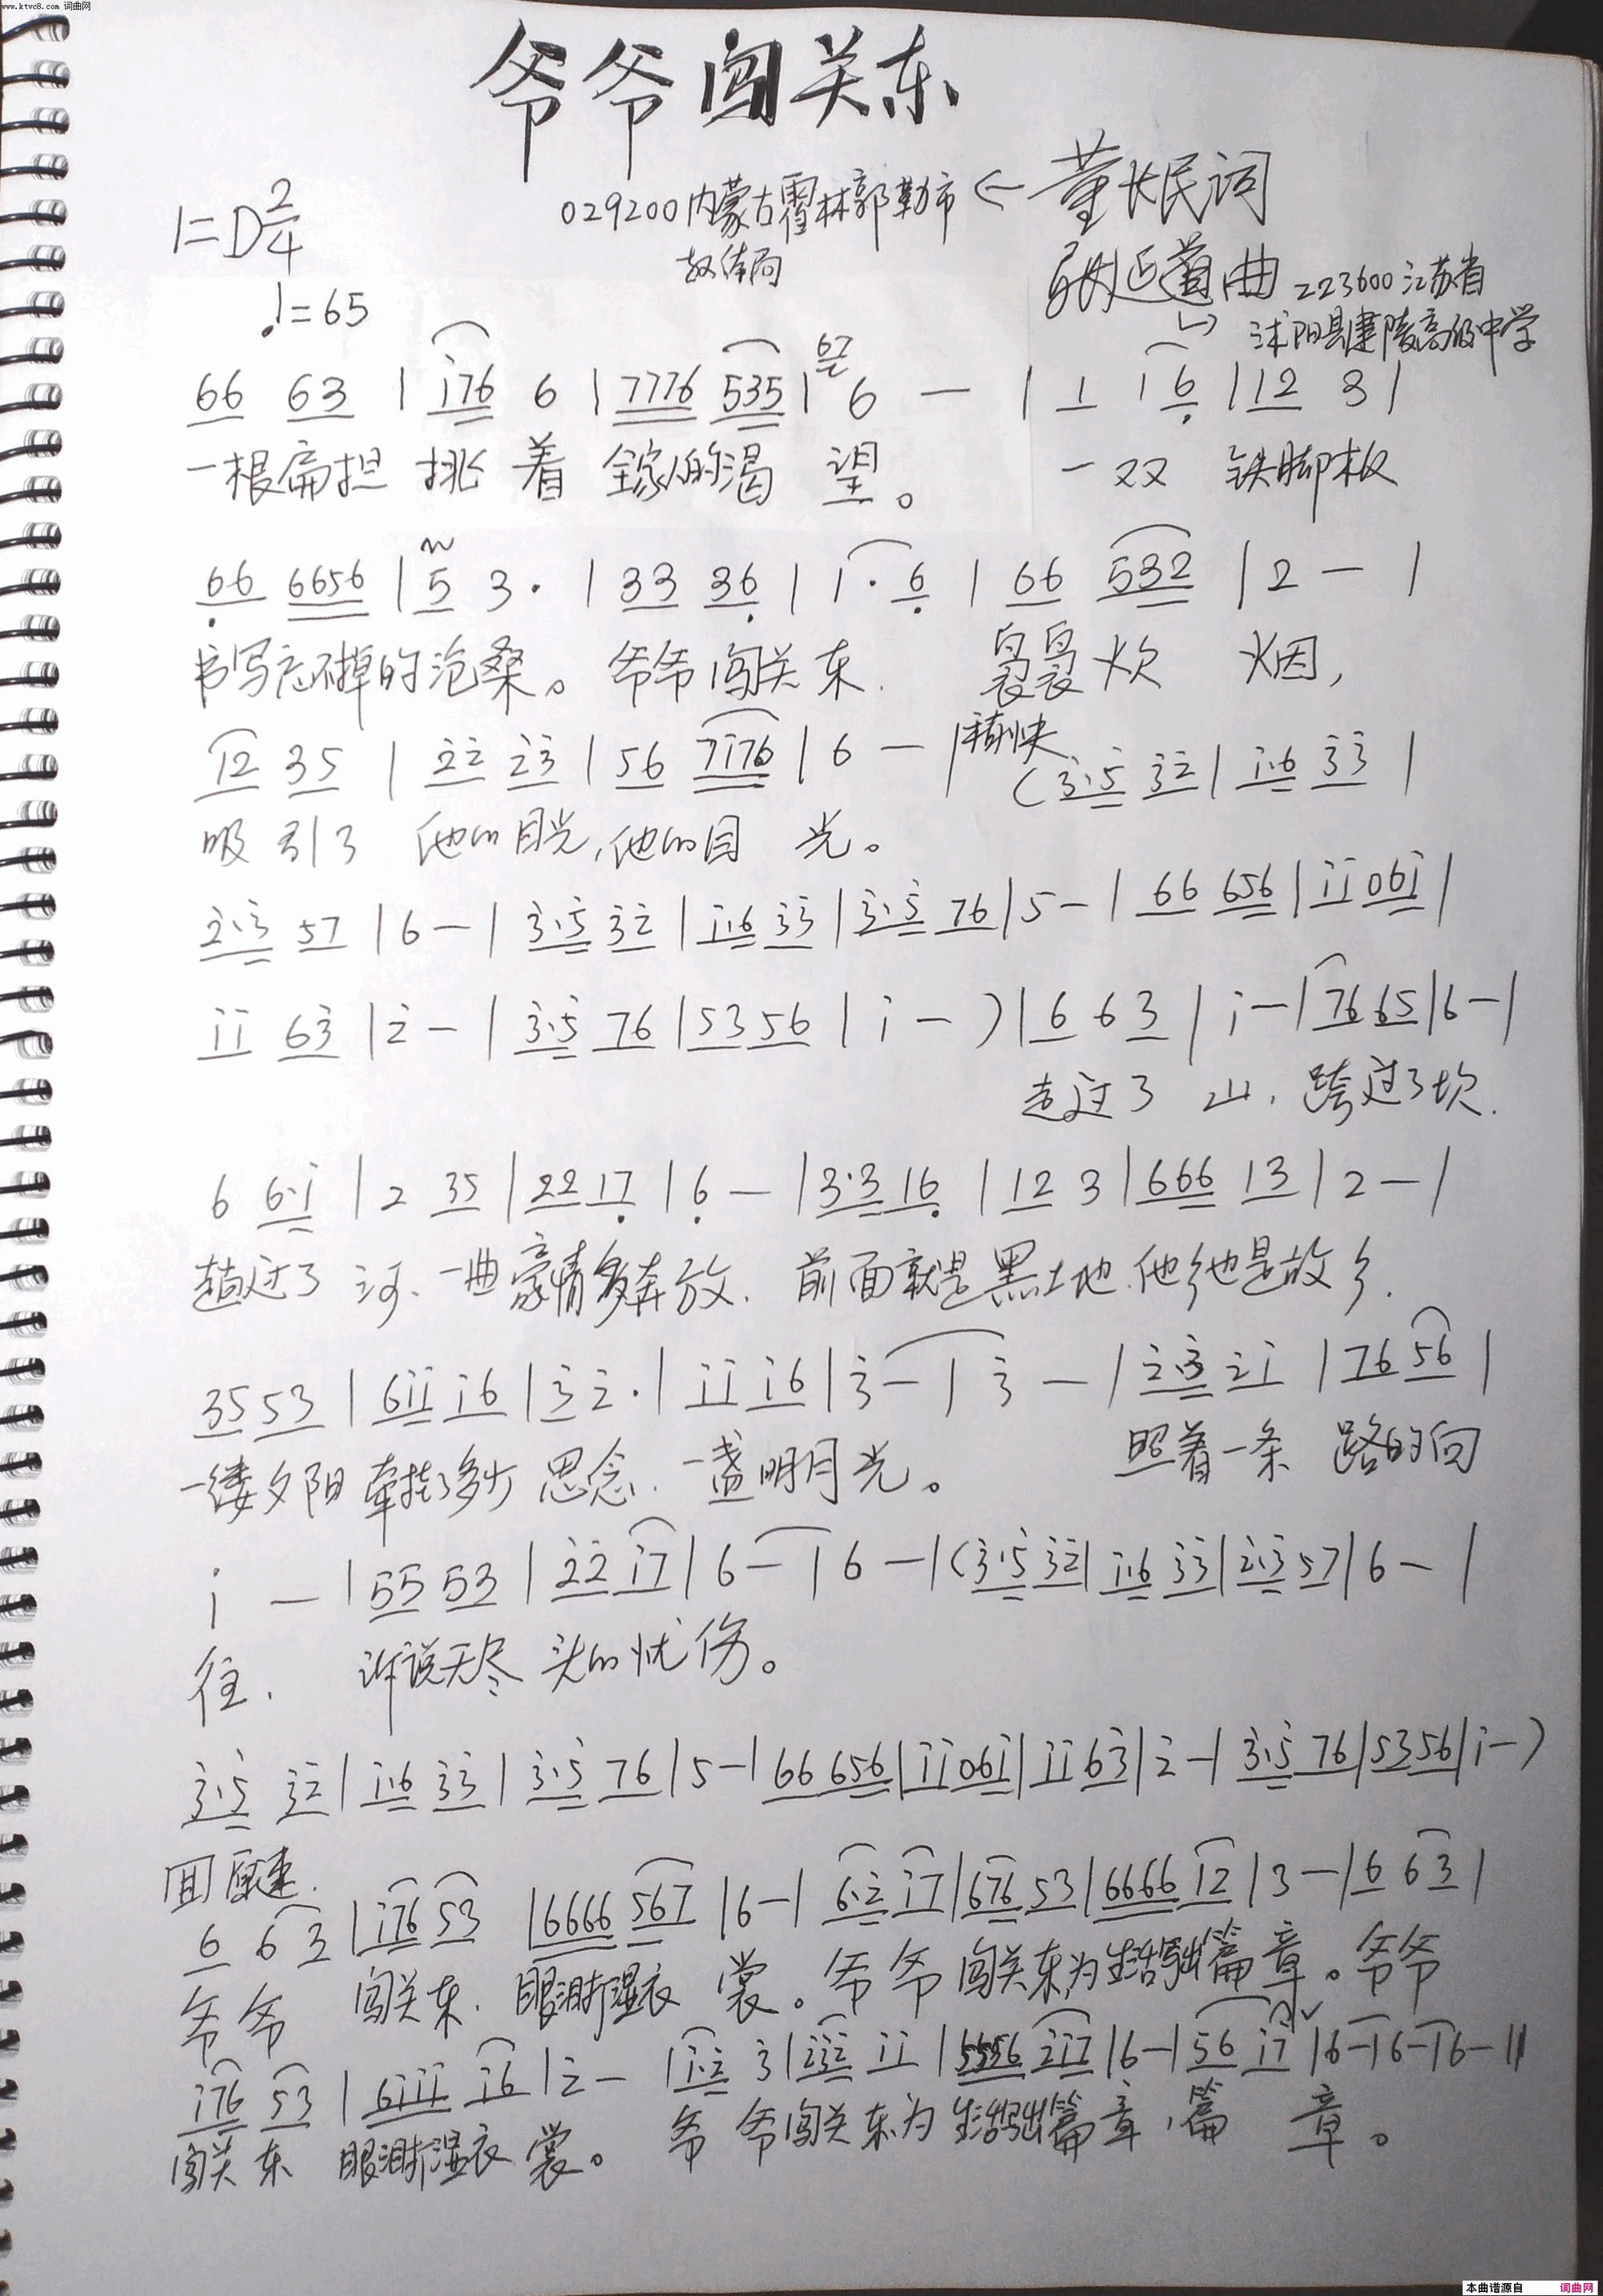 www.ktvc8.com 词曲网
爷爷闯关东
029200内蒙古霍林郭勒市 ← 董长民词
教体局
1=D 2/4
延道曲 223600江苏省
沭阳县建陵高级中学
♩=65
67
66 63 | i76 6 | 7776 535 | 6 — | 1 1 6 | 12 3 |
一根扁担 挑 着 全家人的渴 望。 一双 铁脚板
66 6656 | 5 3 · | 33 36 | 1 · 6 | 66 532 | 2 — |
书写忘不掉的沧桑。 爷爷闯关东. 袅袅炊 烟,
12 35 | 2̇2̇ 2̇3̇ | 56 7i76 | 6 — | 稍快 (3̇·5̇ 3̇2̇ | i·6 3̇3̇ |
吸引了 他的目光,他的目 光。
2̇·3̇ 57 | 6 — | 3̇·5̇ 3̇2̇ | i·6 3̇3̇ | 3̇·5̇ 76 | 5 — | 66 656 | ii 06i |
ii 63̇ | 2̇ — | 3̇·5̇ 76 | 53 56 | i — ) | 6 6 3 | i — | 76 65 | 6 — |
走过了 山, 跨过了坎.
6 6·i | 2 35 | 22 17 | 6 — | 3·3 16 | 12 3 | 666 13 | 2 — |
趟过了 河. 一曲豪情多奔放. 前面就是黑土地.他乡也是故乡.
35 53 | 6ii i6 | 3̇ 2̇ · | ii i6 | 3̇ — | 3̇ — | 2̇·3̇ 2̇i | 76 56 |
一缕夕阳 牵挂了多少 思念. 一盏明月光。 照着一条 路的向
i — | 55 53 | 2̇2̇ i7 | 6 — | 6 — | (3̇·5̇ 3̇2̇ | i·6 3̇3̇ | 2̇·3̇ 57 | 6 — |
往. 诉说无尽 头的忧伤。
3̇·5̇ 3̇2̇ | i·6 3̇3̇ | 3̇·5̇ 76 | 5 — | 66 656 | ii 06i | ii 63̇ | 2̇ — | 3̇·5̇ 76 | 53 56 | i — )
回原速.
6 6 3 | i76 53 | 6666 567 | 6 — | 6·2̇ i7 | 676 53 | 6666 12 | 3 — | 6 6 3 |
爷爷 闯关东. 眼泪打湿衣 裳。爷爷 闯关东为生活写出篇章。爷爷
i76 53 | 6iii i6 | 2̇ — | i·2̇ 3̇ | 2̇3̇2̇ ii | 5556 2̇i7 | 6 — | 56 i7 | 6 — | 6 — | 6 — ‖
闯关东 眼泪打湿衣裳。 爷爷闯关东为 生活写出篇章,篇 章。
本曲谱源自 词曲网